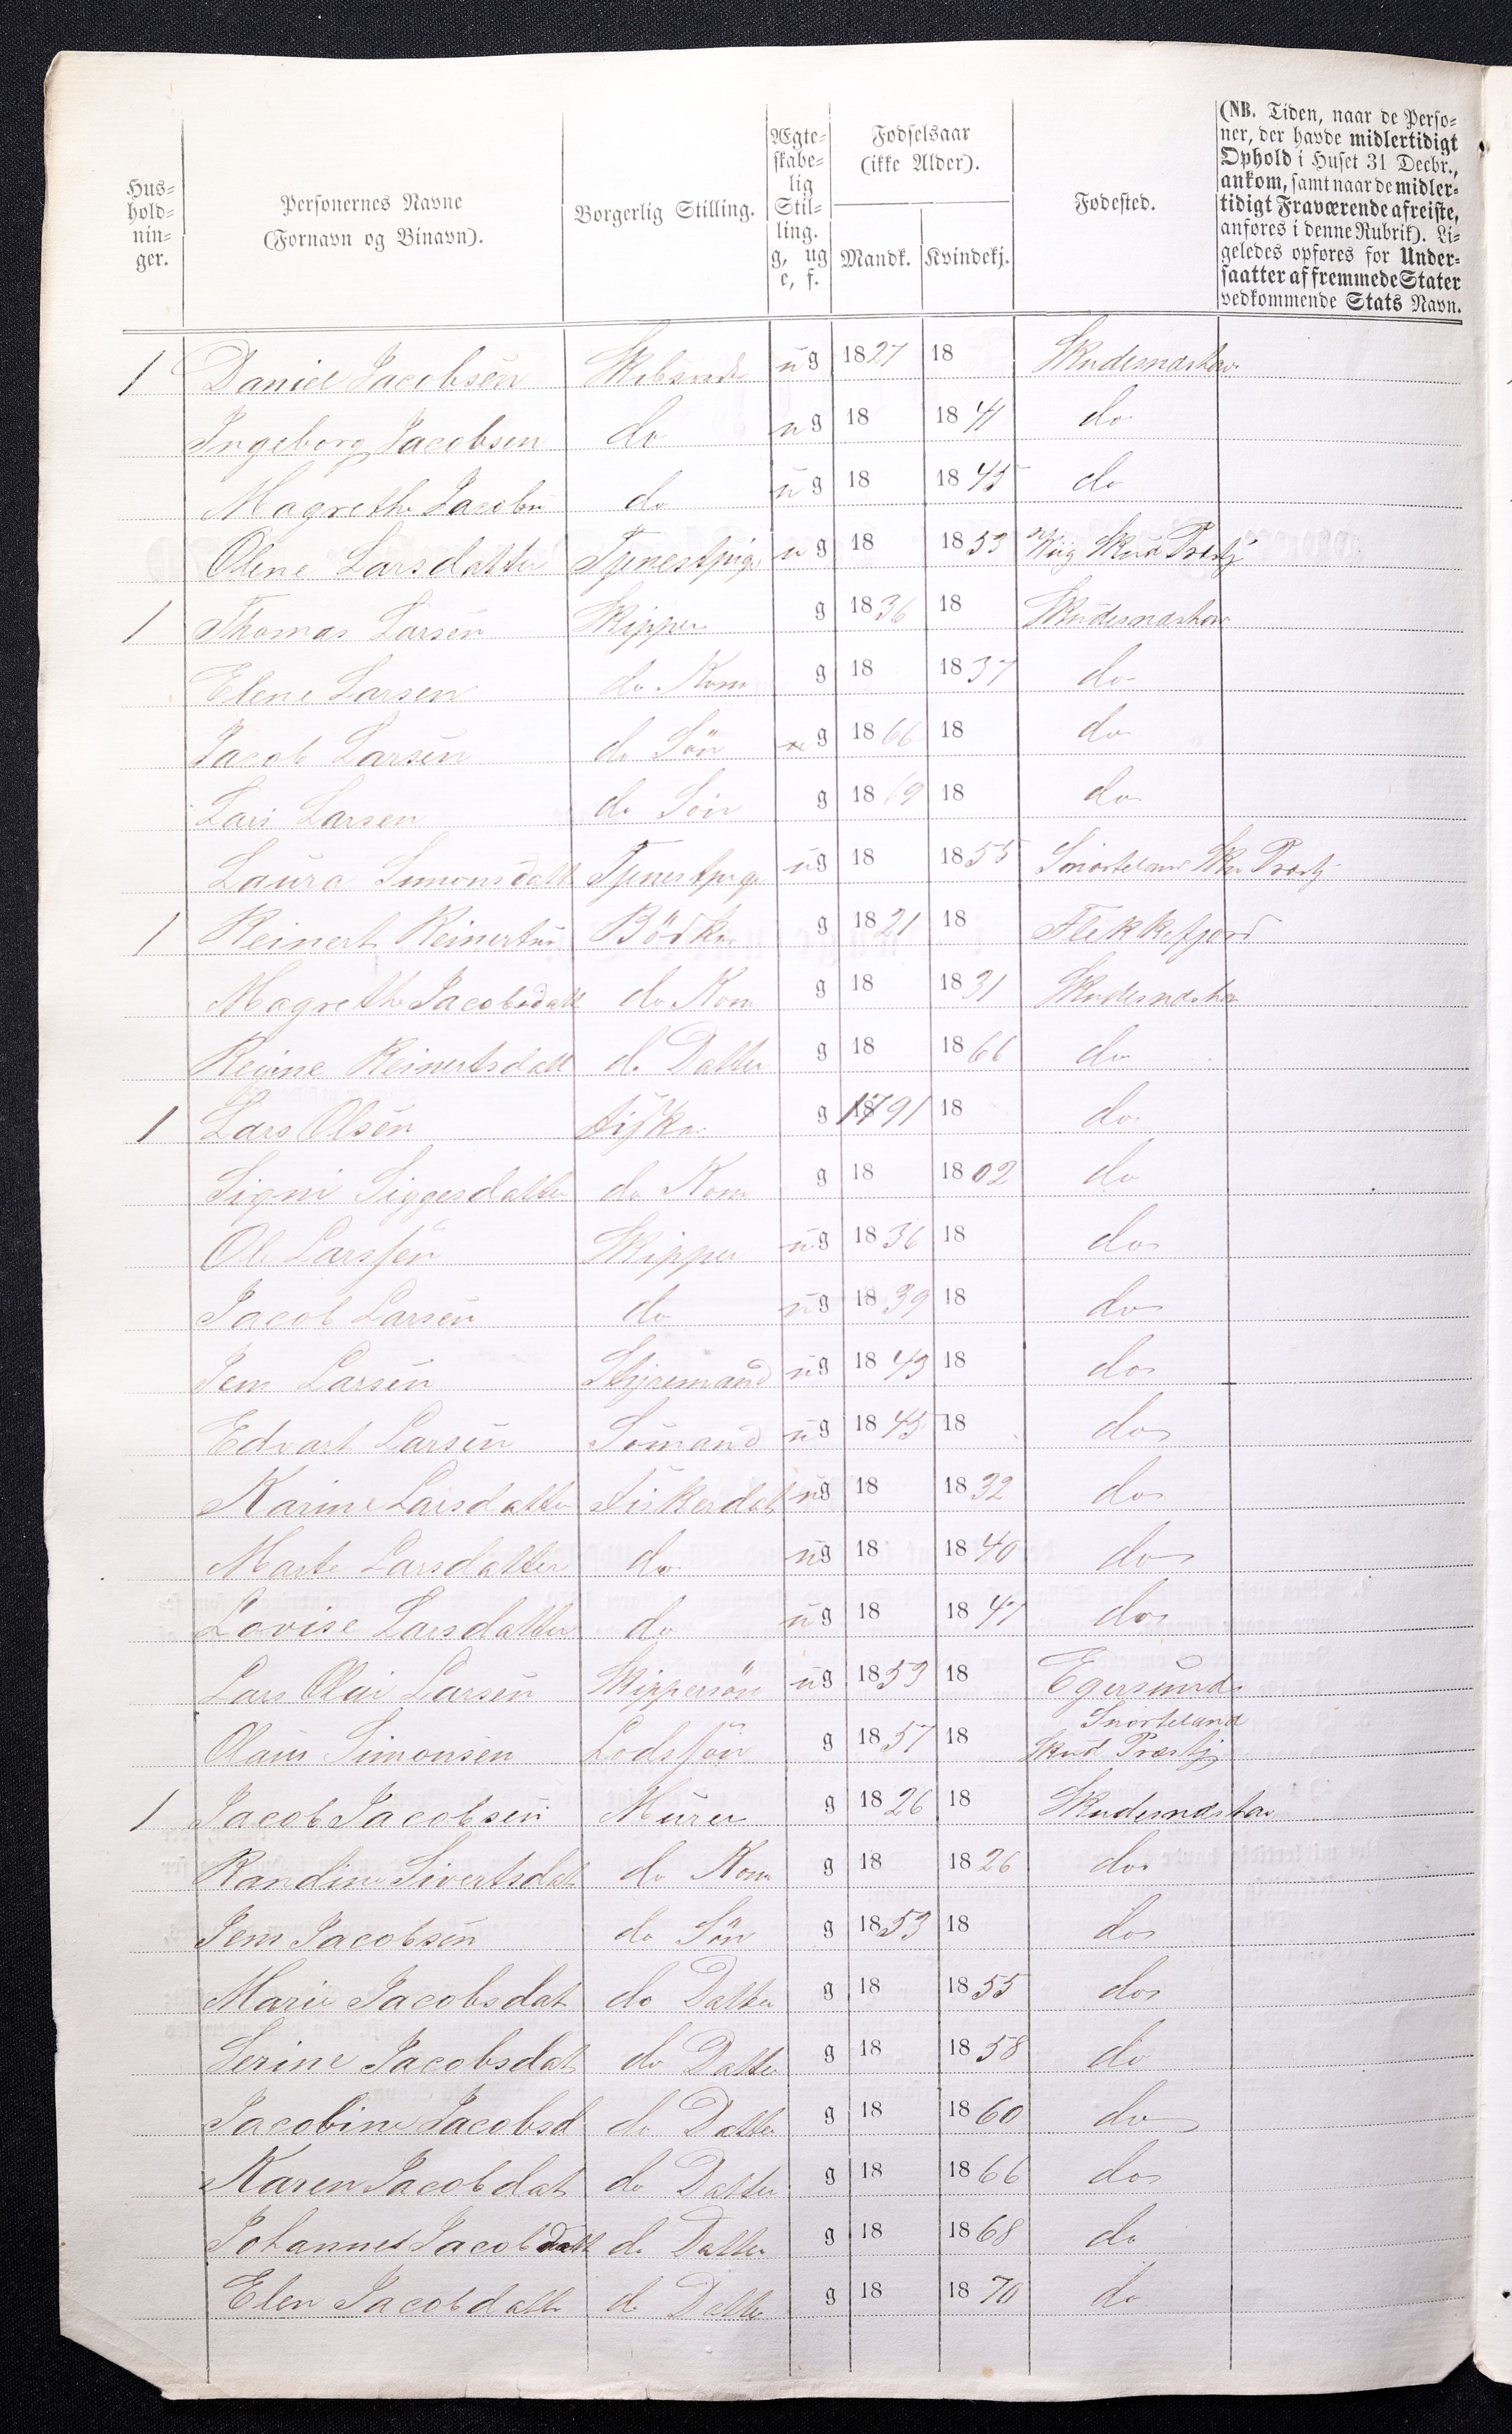 Hus=
hold=
nin=
ger.
Personernes Navne
(Fornavn og Binavn).
Borgerlig Stilling.
Ægte=
skabe=
lig
Stil=
ling.
g, ug
e, f.
Fødselsaar
(ikke Alder).
Mandk. Kvindekj.
Fødested.
(NB. Tiden, naar de Perso=
ner, der havde midlertidigt
Ophold i Huset 31 Decbr.,
ankom, samt naar de midler=
tidigt Fraværende afreiste,
anføres i denne Rubrik). Li=
geledes opføres for Under=
saatter af fremmede Stater
vedkommende Stats Navn.
1 Daniel Jacobsen ug 1827 18 Skudesneshavn
Ingeborg Jacobsen do ug 18 1841 do
Magrethe Jacobsen do ug 18 1845 do
Olene Larsdatter Tjenestpige ug 18 1853 Wiig Skud Prestj
1 Thomas Larsen Skipper g 1836 18 Skudesneshavn
Elene Larsen do Kone g 18 1837 do
Jacob Larsen do Søn ug 1866 18 do
Lars Larsen do Søn g 1869 18 do
Laura Simonsdatt Tjenestpige ug 18 1855 Snorteland Sku Prestj
1 Reinert Reinertsen Bödker g 1821 18 Flekkefjord
Magrethe Jacobsdatt do Kone g 18 1831 Skudesneshavn
Regine Reinertsdatt do Datter g 18 1866 do
1 Lars Olsen Fisker g 1791 18 do
Signi Siggesdatter do Kone g 18 1802 do
Ole Larssen Skipper ug 1836 18 do
Jacob Larsen do ug 1839 18 do
Jens Larsen Styremand ug 1843 18 do
Edvart Larsen Sømand ug 1845 18 do
Karine Larsdatter Fiskerdat ug 18 1832 do
Marte Larsdatter do ug 18 1840 do
Lovise Larsdatter do ug 18 1847 do
Lars Olai Larsen Skippersøn ug 1859 18 Egersund
Olaus Simonsen Lodssøn g 1857 18 Snorteland
Skud Præstj
1 Jacob Jacobsen Murer g 1826 18 Skudesneshavn
Randine Sivertsdat do Kone g 18 1826 do
Jens Jacobsen do Søn g 1853 18 do
Marie Jacobsdat do Datter g 18 1855 do
Serine Jacobsdat do Datter g 18 1858 do
Jacobine Jacobsd do Datter g 18 1860 do
Karen Jacobdat do Datter g 18 1866 do
Johannes Jacobdatt do Datter g 18 1868 do
Elen Jacobdatter do Datter g 18 1870 do